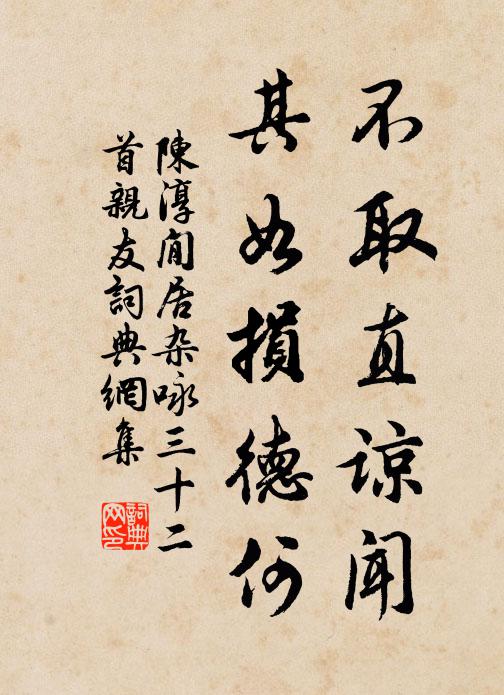 不取直谅闻
其如損德何
陳淳閒居杂咏三十二
首親友詞典網集
詞典网印